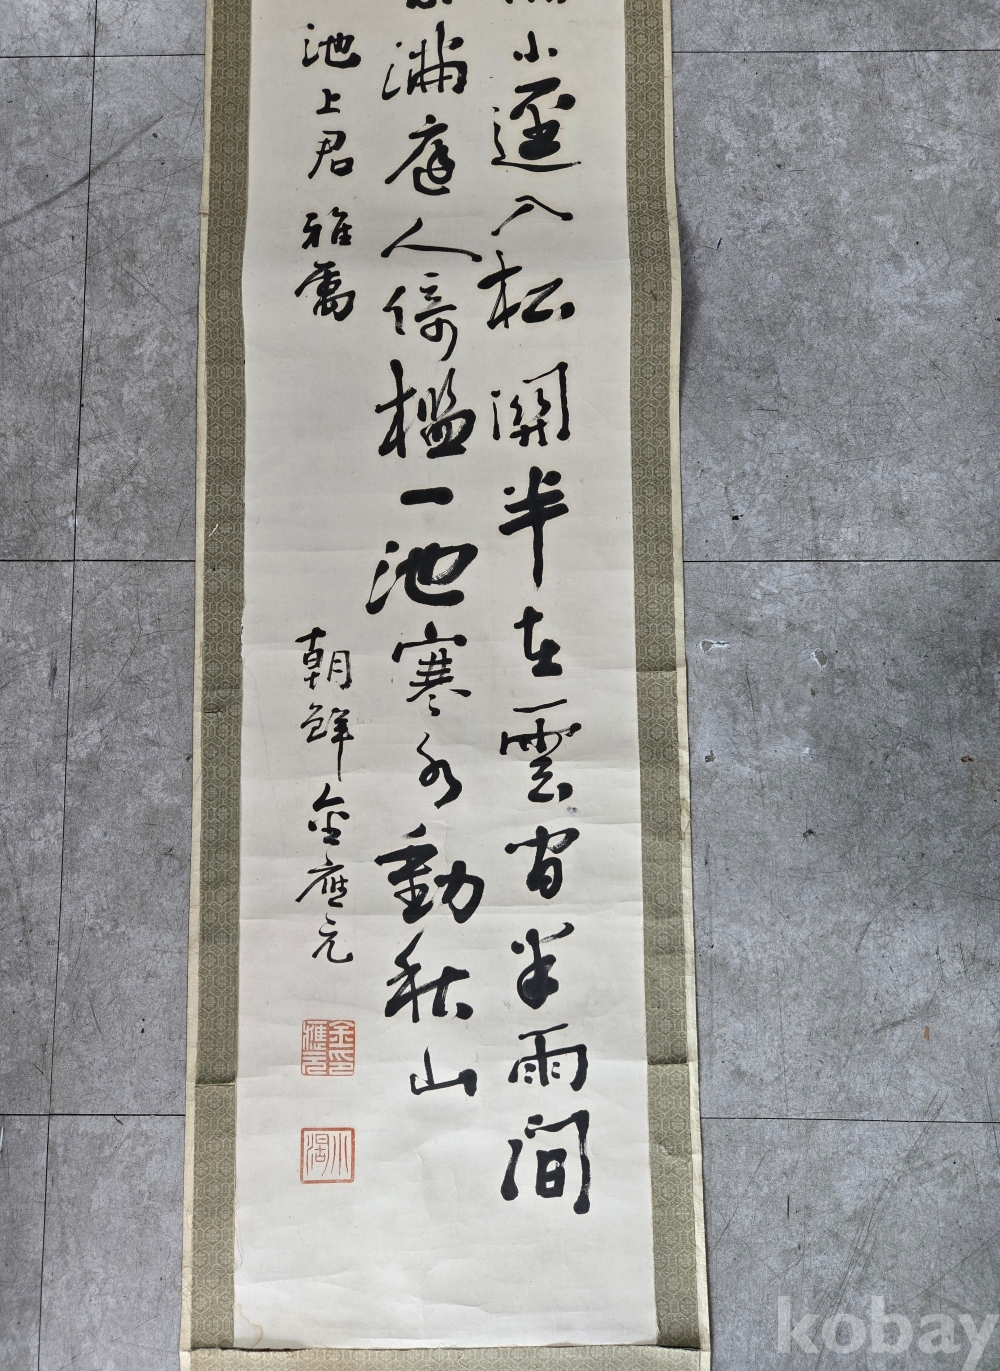 小逕入松關半在雲窗半雨間
滿庭人倚檻一池寒水動秋山
池上君雅屬
朝鮮金應元
金印應元
小湖
kobay